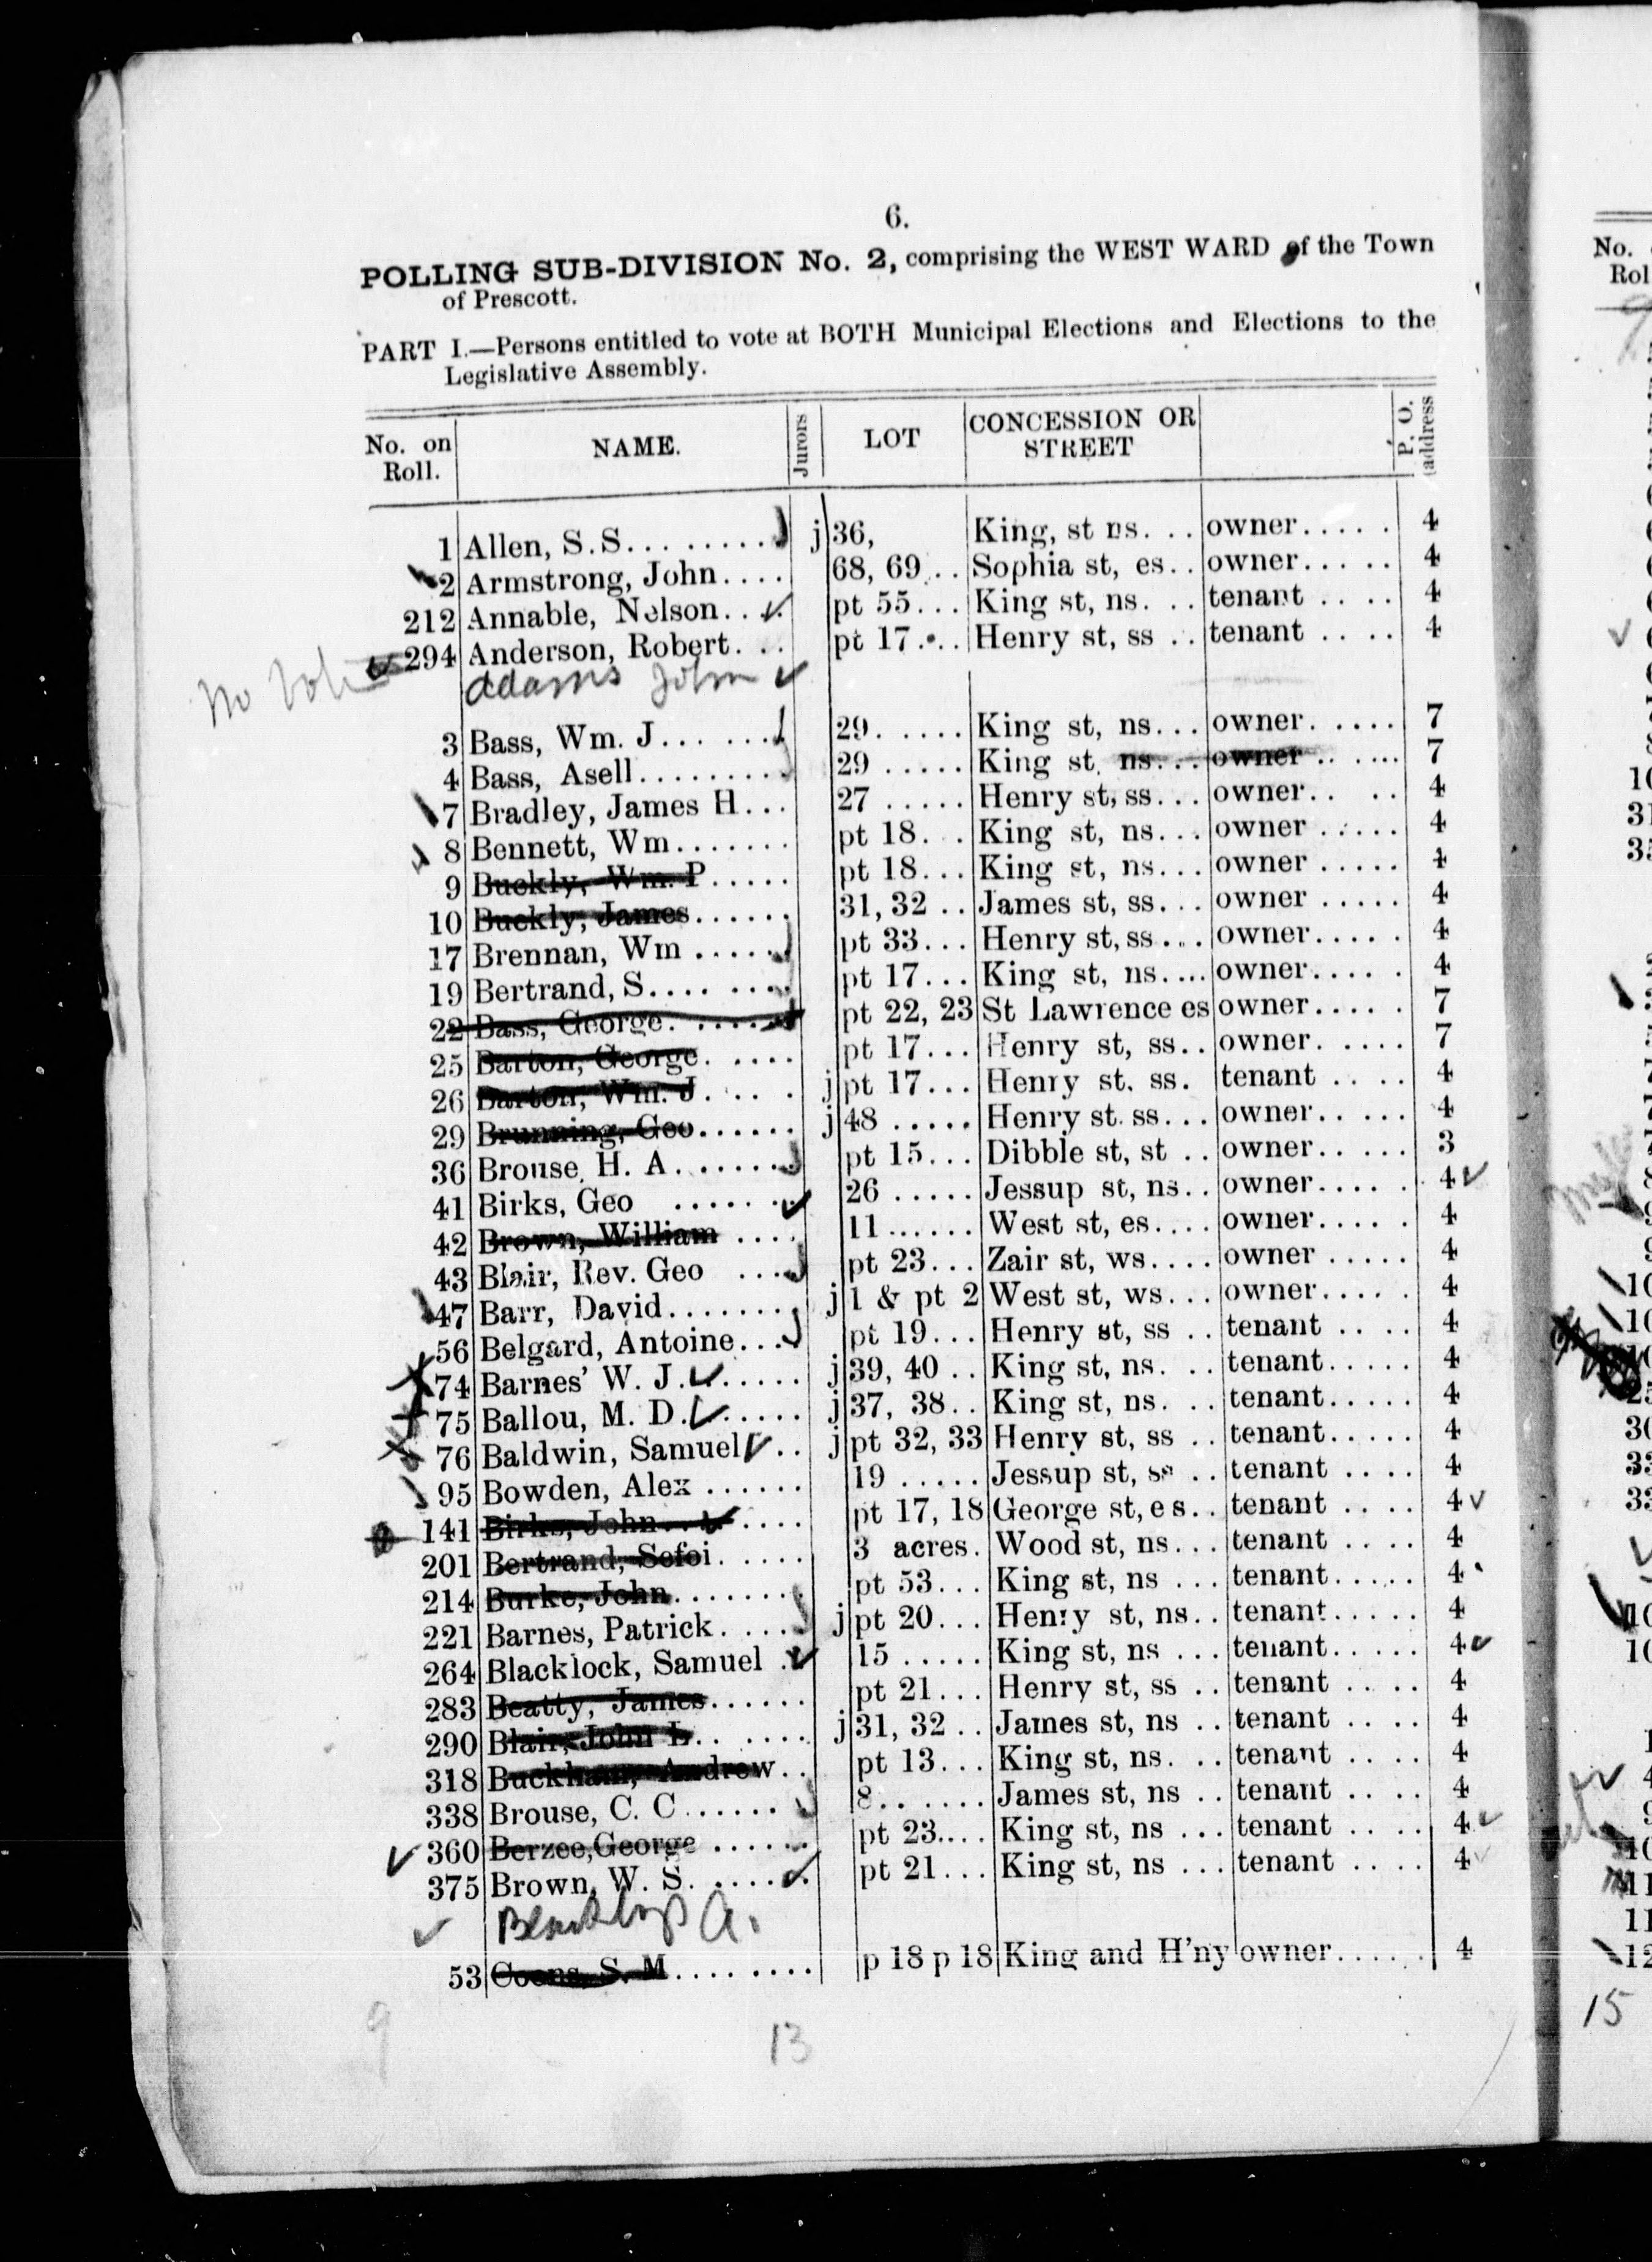 6.
POLLING SUB-DIVISION No. 2, comprising the WEST WARD of the Town
of Prescott.
PART I.—Persons entitled to vote at BOTH Municipal Elections and Elections to the
Legislative Assembly.
No. on Roll. NAME. Jurors LOT CONCESSION OR STREET P. O. address
1 Allen, S.S........ j 36, King, st ns... owner..... 4
2 Armstrong, John.... 68, 69.. Sophia st, es.. owner..... 4
212 Annable, Nelson... pt 55... King st, ns... tenant .... 4
294 Anderson, Robert... pt 17... Henry st, ss .. tenant .... 4
No Adams John
3 Bass, Wm. J....... 29...... King st, ns... owner..... 7
4 Bass, Asell......... 29 ..... King st, ns... owner ..... 7
7 Bradley, James H... 27 ..... Henry st, ss... owner.. .. 4
8 Bennett, Wm....... pt 18... King st, ns... owner ..... 4
9 Buckly, Wm. P..... pt 18... King st, ns... owner ..... 4
10 Buckly, James...... 31, 32 .. James st, ss... owner ..... 4
17 Brennan, Wm ..... pt 33... Henry st, ss... owner..... 4
19 Bertrand, S........ pt 17... King st, ns.... owner..... 4
22 Bass, George....... pt 22, 23 St Lawrence es owner..... 7
25 Barton, George..... pt 17... Henry st, ss.. owner..... 7
26 Barton, Wm. J..... j pt 17... Henry st. ss. tenant .... 4
29 Brunning, Geo...... j 48 ..... Henry st. ss... owner..... 4
36 Brouse, H. A....... pt 15... Dibble st, st .. owner..... 3
41 Birks, Geo ...... 26 ..... Jessup st, ns.. owner..... 4
42 Brown, William .... 11...... West st, es.... owner..... 4
43 Blair, Rev. Geo .... pt 23... Zair st, ws.... owner ..... 4
47 Barr, David........ j 1 & pt 2 West st, ws... owner..... 4
56 Belgard, Antoine.... pt 19... Henry st, ss .. tenant .... 4
74 Barnes' W. J....... j 39, 40 .. King st, ns... tenant..... 4
75 Ballou, M. D...... j 37, 38.. King st, ns... tenant..... 4
76 Baldwin, Samuel .. j pt 32, 33 Henry st, ss .. tenant..... 4
95 Bowden, Alex ...... 19 ..... Jessup st, ss .. tenant .... 4
141 Birks, John........ pt 17, 18 George st, es.. tenant .... 4
201 Bertrand, Sefoi..... 3 acres. Wood st, ns... tenant .... 4
214 Burke, John........ pt 53... King st, ns ... tenant..... 4
221 Barnes, Patrick..... j pt 20... Henry st, ns.. tenant..... 4
264 Blacklock, Samuel . 15 ..... King st, ns ... tenant..... 4
283 Beatty, James...... pt 21... Henry st, ss .. tenant .... 4
290 Blair, John L....... j 31, 32 .. James st, ns .. tenant .... 4
318 Buckham, Andrew.. pt 13... King st, ns... tenant .... 4
338 Brouse, C. C...... 8....... James st, ns .. tenant .... 4
360 Berzee,George ...... pt 23.... King st, ns ... tenant .... 4
375 Brown, W. S...... pt 21... King st, ns ... tenant .... 4
A.
53 Coons, S. M........ p 18 p 18 King and H'ny owner..... 4
9 13
No.
Rol
15